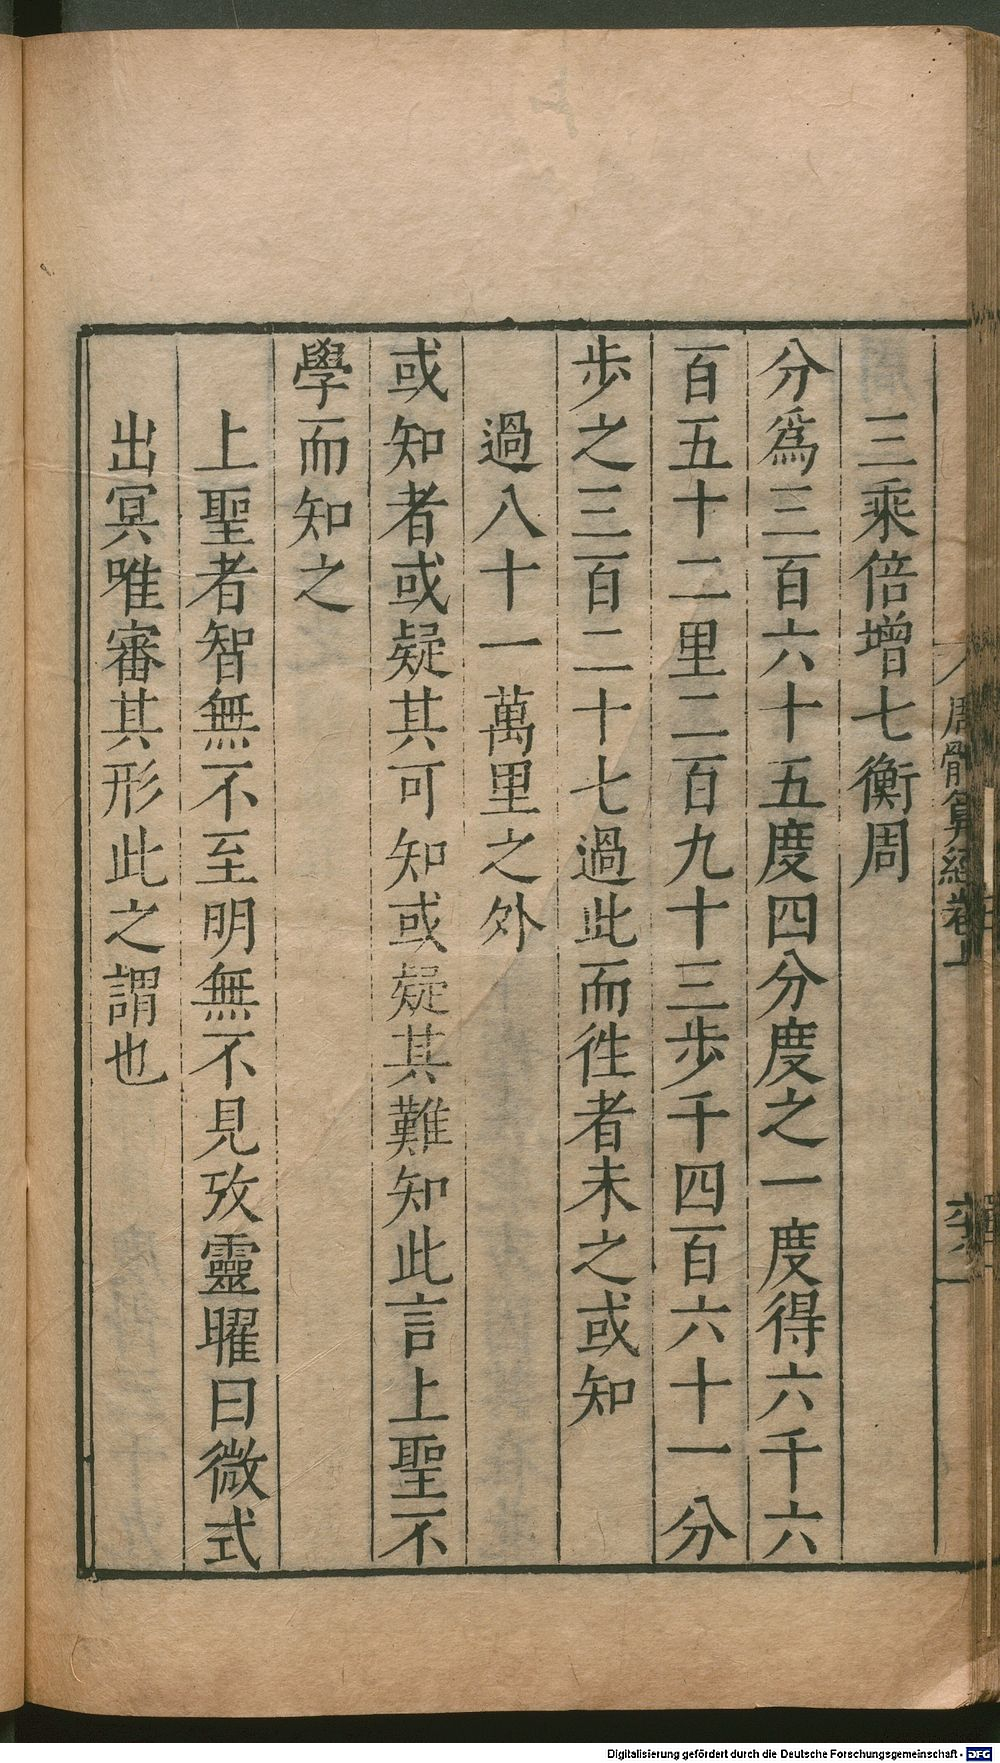 周髀算經卷上
三乘倍增七衡周
分爲三百六十五度四分度之一度得六千六
百五十二里二百九十三步千四百六十一分
步之三百二十七過此而徃者未之或知
過八十一萬里之外
或知者或疑其可知或疑其難知此言上聖不
學而知之
上聖者智無不至明無不見攷靈曜曰微式
出冥唯審其形此之謂也
Digitalisierung gefördert durch die Deutsche Forschungsgemeinschaft - DFG